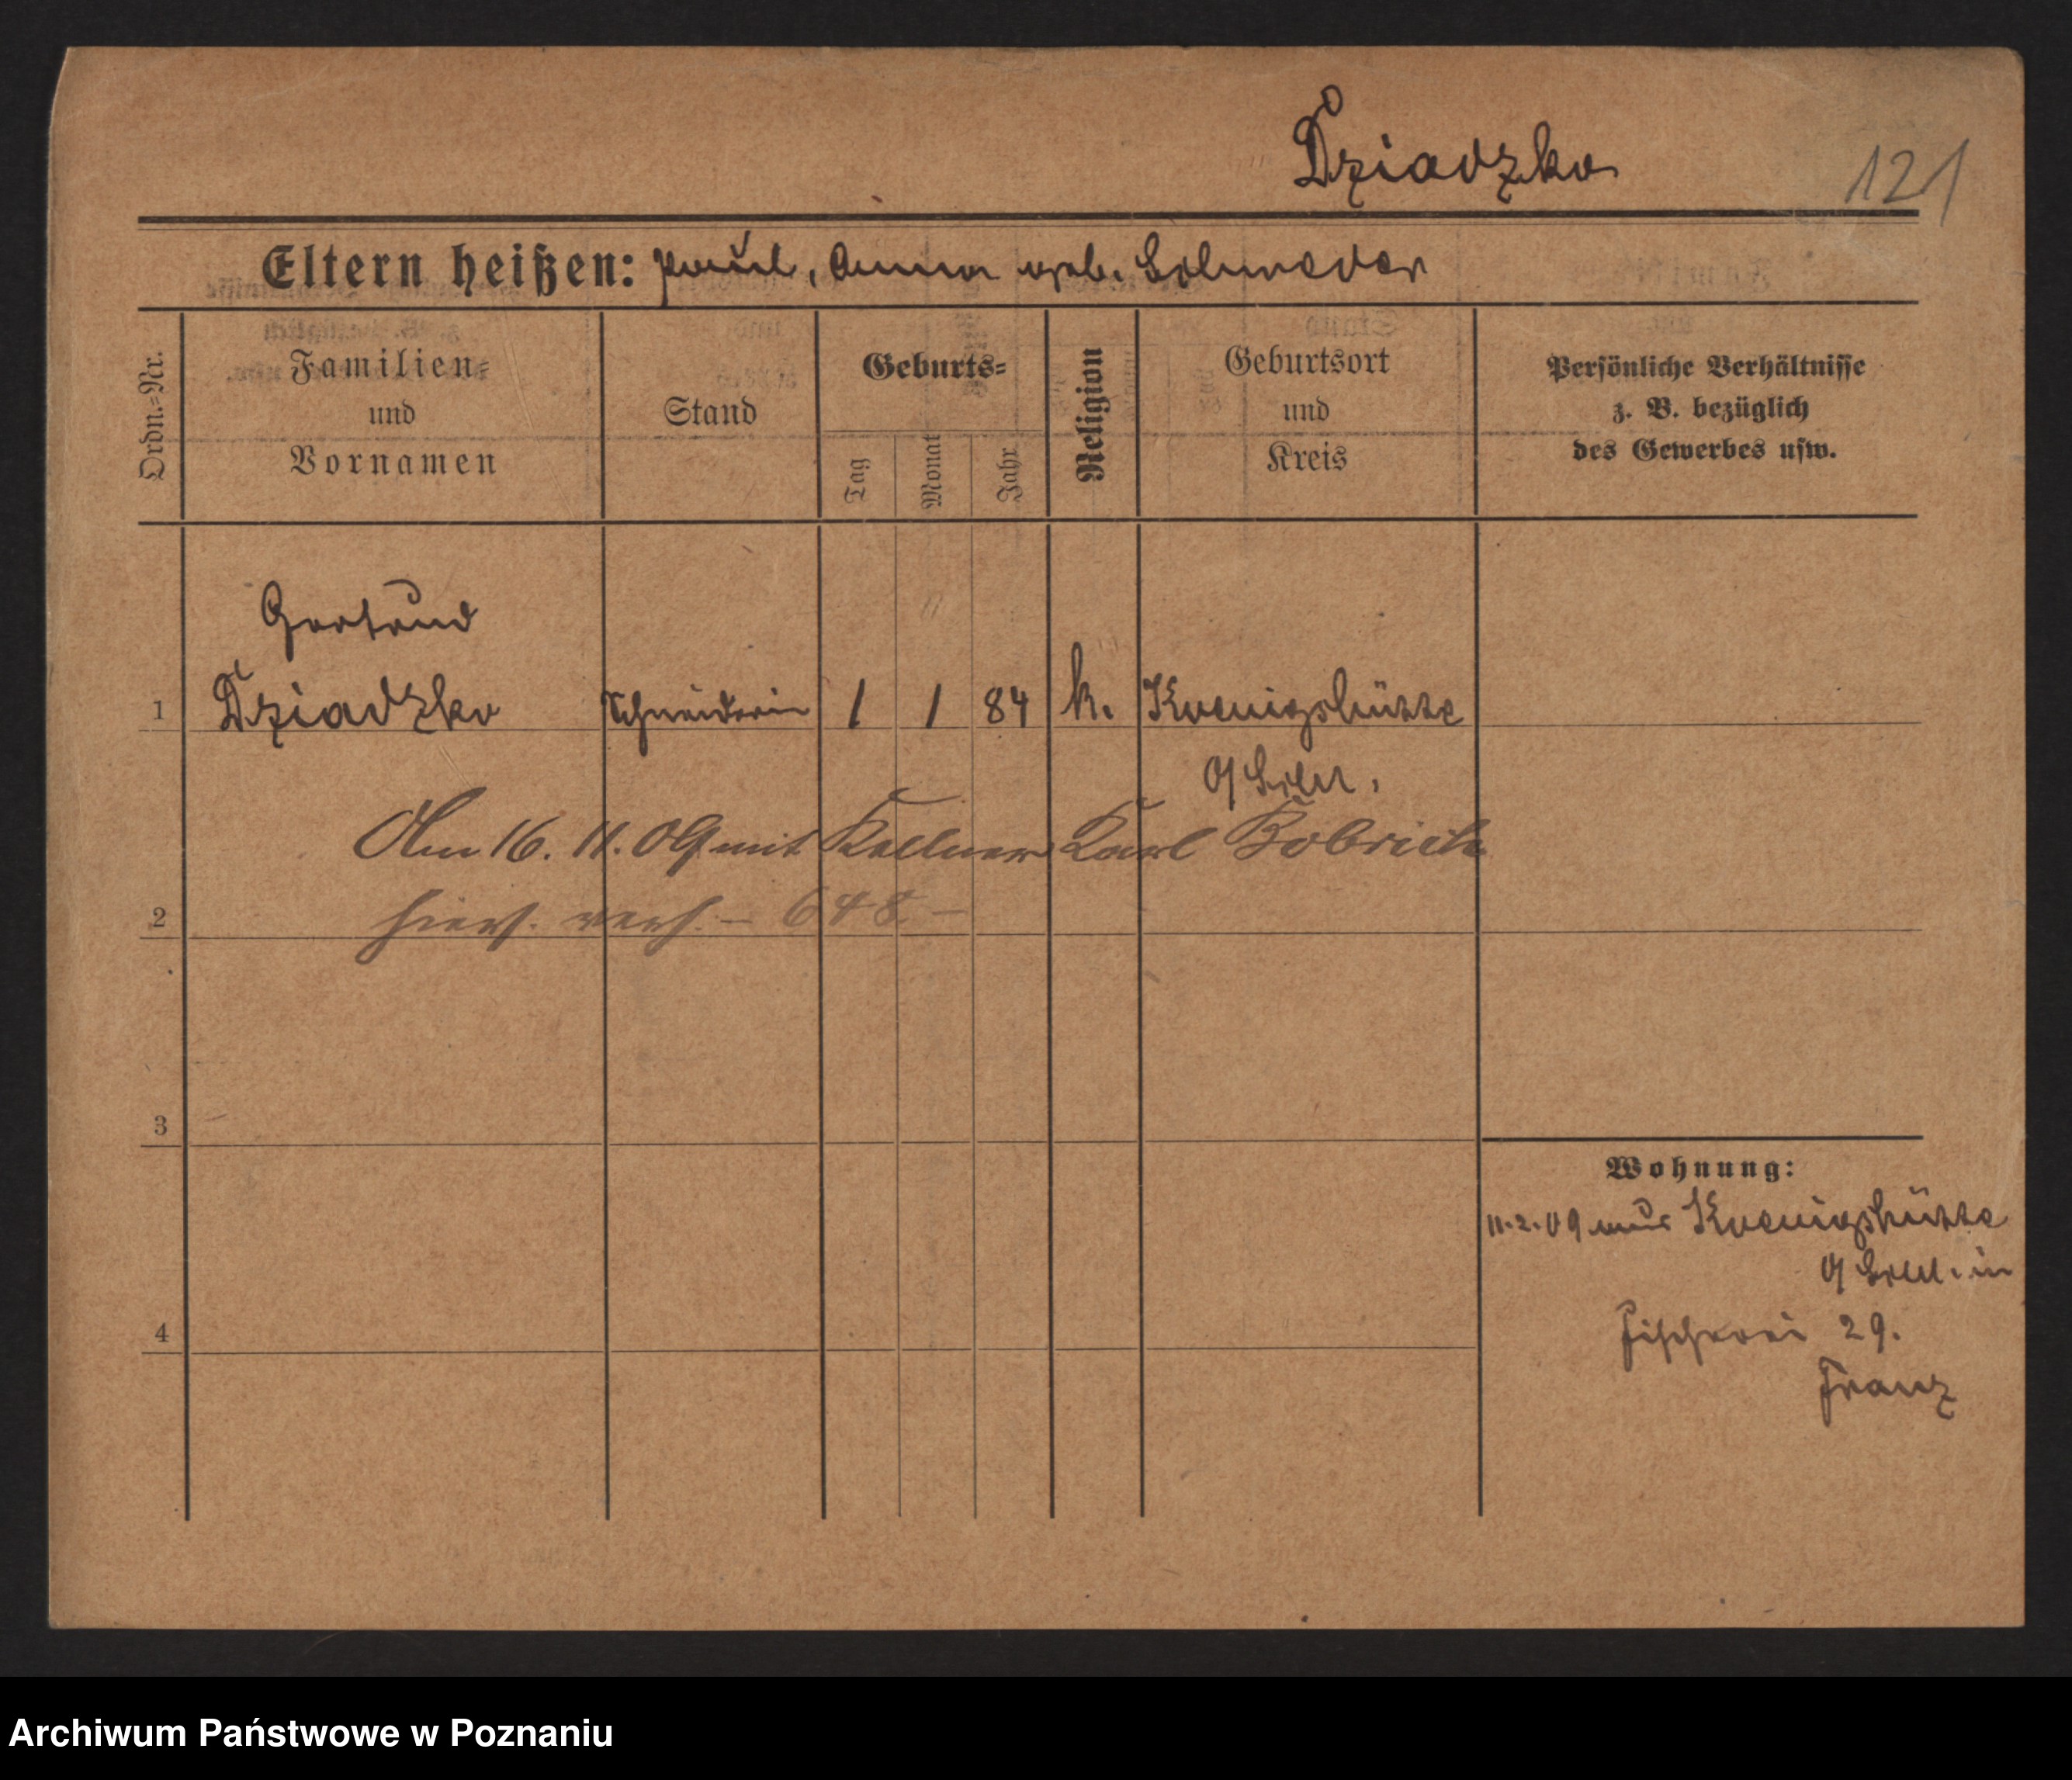 Dziadzko
121
Eltern heißen: Paul, Anna geb. Schneder
Ordn.=Nr.
Familien=
und
Vornamen
Stand
Geburts=
Tag
Monat
Jahr
Religion
Geburtsort
und
Kreis
Persönliche Verhältnisse
z. B. bezüglich
des Gewerbes usw.
Gertrud
1 Dziadzko Schneiderin 1 1 84 k. Koenigshütte
O/Schl.
Am 16. 11. 09 mit Kellner Karl Bobrich
2 hiers. verh. – 648. –
3
4
Wohnung:
11.2.09 aus Koenigshütte
O/Schl. in
Fischerei 29.
Franz
Archiwum Państwowe w Poznaniu